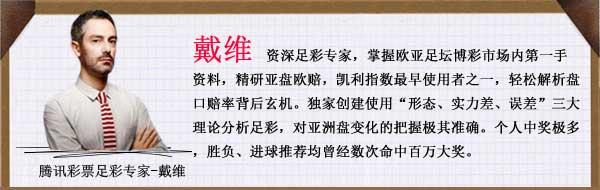 戴维 资深足彩专家，掌握欧亚足坛博彩市场内第一手
资料，精研亚盘欧赔，凯利指数最早使用者之一，轻松解析盘
口赔率背后玄机。独家创建使用“形态、实力差、误差”三大
理论分析足彩，对亚洲盘变化的把握极其准确。个人中奖极多
，胜负、进球推荐均曾经数次命中百万大奖。
腾讯彩票足彩专家-戴维